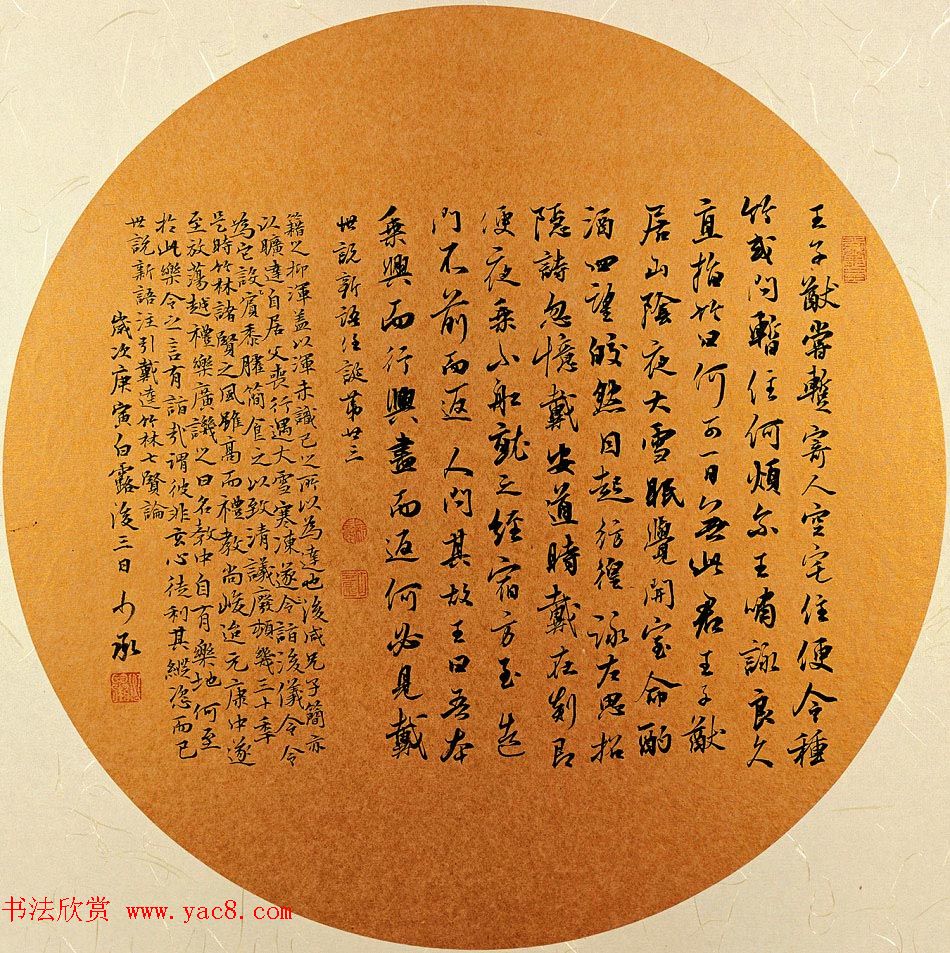 王子猷嘗暫寄人空宅住便令種
竹或問暫住何煩尔王嘯詠良久
直指竹曰何可一日無此君王子猷
居山陰夜大雪眠覺開室命酌
酒四望皎然因起彷徨詠左思招
隱詩忽憶戴安道時戴在剡即
便夜乘小船就之經宿方至造
門不前而返人問其故王曰吾本
乘興而行興盡而返何必見戴
世說新語任誕第廿三
籍之抑渾蓋以渾未識己之所以為達也後咸兄子簡亦
以曠達自居父喪行遇大雪寒凍遂令詣浚儀令令
為它設賓黍臛簡食之以致清議廢頓幾三十年
是時竹林諸賢之風雖高而禮教尚峻迨元康中遂
至放蕩越禮樂廣譏之曰名教中自有樂地何至
於此樂令之言有詣哉謂彼非玄心徒利其縱恣而已
世說新語注引戴逵竹林七賢論
歲次庚寅白露後三日 少承
书法欣赏 www.yac8.com